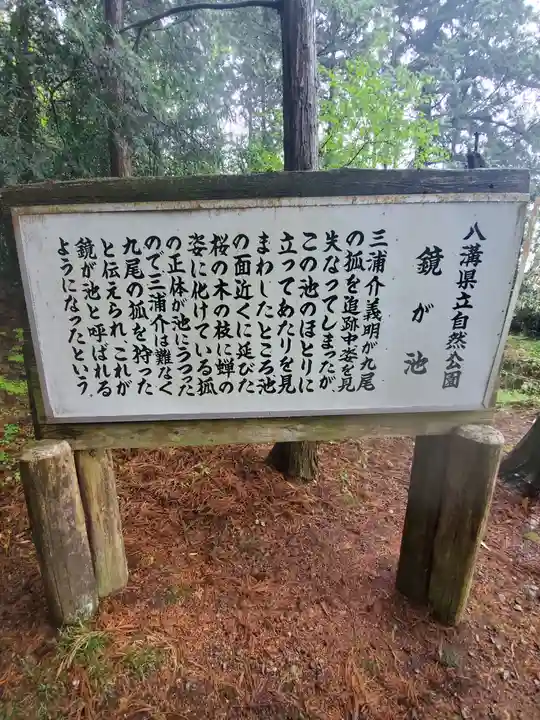 八溝県立自然公園
鏡が池
三浦介義明が九尾
の狐を追跡中姿を見
失なってしまったが、
この池のほとりに
立ってあたりを見
まわしたところ池
の面近くに延びた
桜の木の枝に蝉の
姿に化けている狐
の正体が池にうつった
ので、三浦介は難なく
九尾の狐を狩った
と伝えられ、これが
鏡が池と呼ばれる
ようになったという。